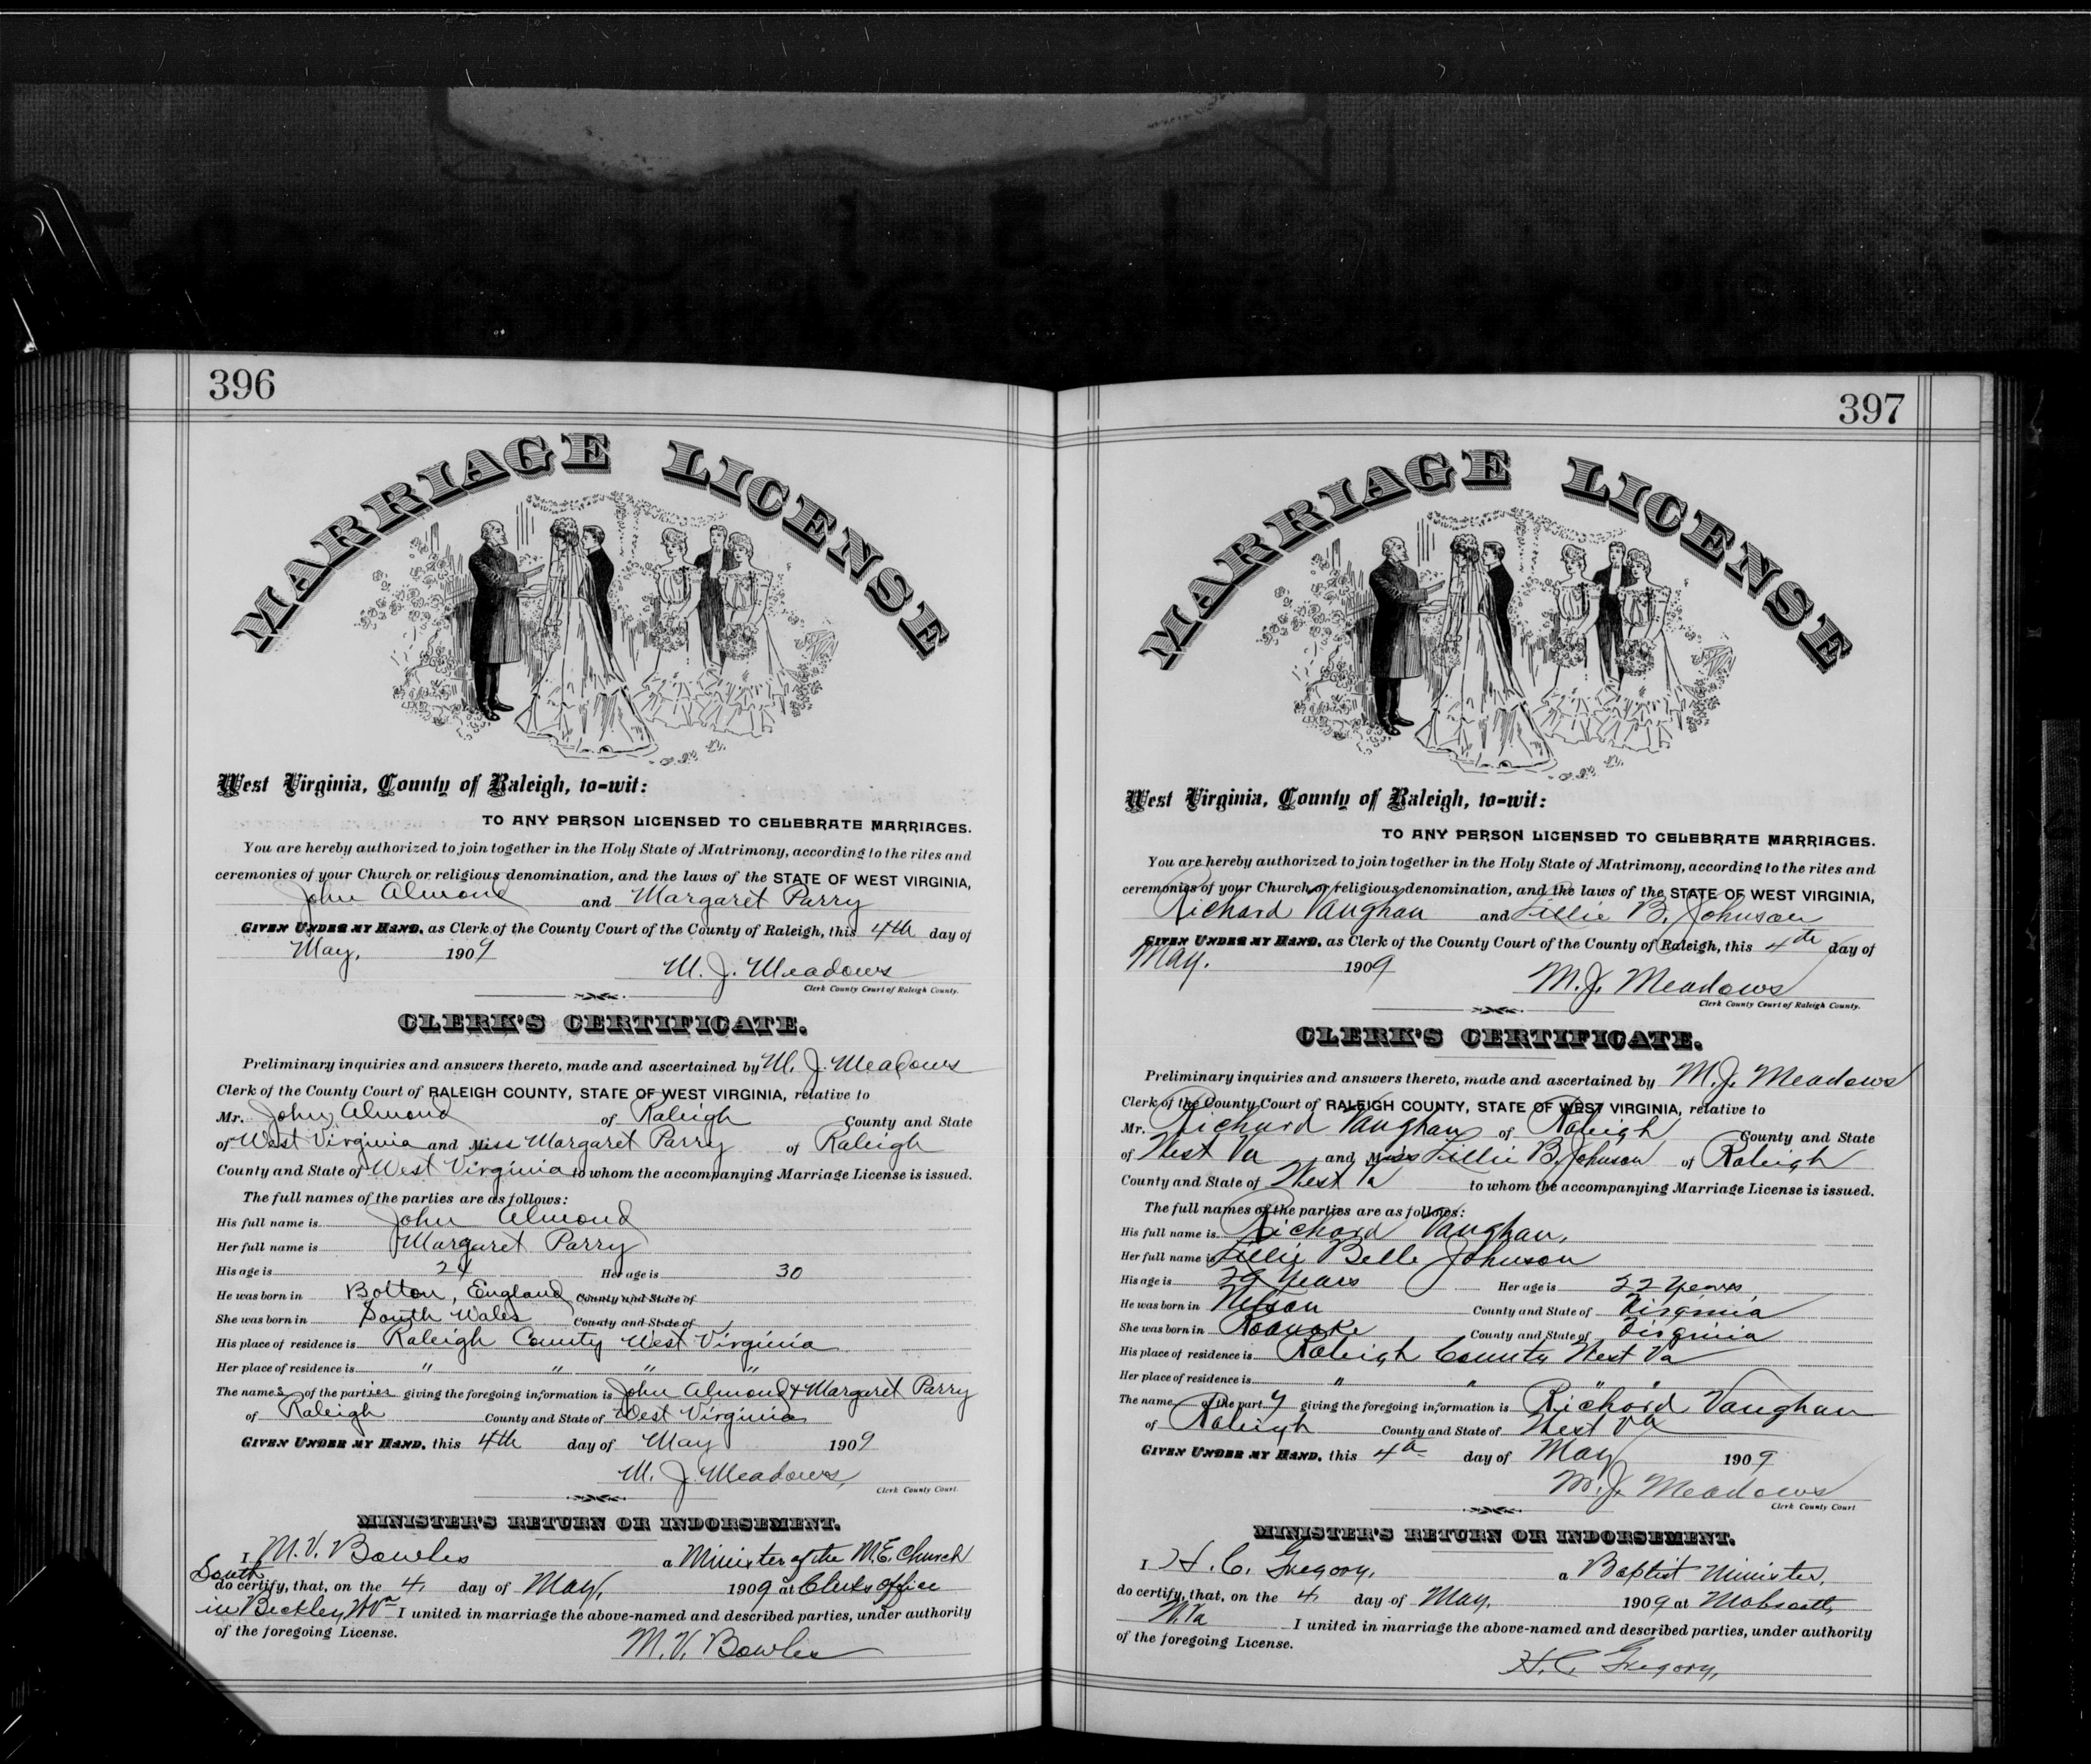 396
MARRIAGE LICENSE
West Virginia, County of Raleigh, to-wit:
TO ANY PERSON LICENSED TO CELEBRATE MARRIAGES.
You are hereby authorized to join together in the Holy State of Matrimony, according to the rites and
ceremonies of your Church or religious denomination, and the laws of the STATE OF WEST VIRGINIA,
John Almond and Margaret Parry
GIVEN UNDER MY HAND, as Clerk of the County Court of the County of Raleigh, this 4th day of
May, 1909
M. J. Meadows
Clerk County Court of Raleigh County.
CLERK'S CERTIFICATE.
Preliminary inquiries and answers thereto, made and ascertained by M. J. Meadows
Clerk of the County Court of RALEIGH COUNTY, STATE OF WEST VIRGINIA, relative to
Mr. John Almond of Raleigh County and State
of West Virginia and Miss Margaret Parry of Raleigh
County and State of West Virginia to whom the accompanying Marriage License is issued.
The full names of the parties are as follows:
His full name is John Almond
Her full name is Margaret Parry
His age is 24 Her age is 30
He was born in Bolton, England County and State of
She was born in South Wales County and State of
His place of residence is Raleigh County West Virginia
Her place of residence is " " " "
The names of the parties giving the foregoing information is John Almond & Margaret Parry
of Raleigh County and State of West Virginia
GIVEN UNDER MY HAND, this 4th day of May 1909
M. J. Meadows,
Clerk County Court.
MINISTER'S RETURN OR INDORSEMENT.
I M. V. Bowles a Minister of the M.E. Church
South
do certify, that, on the 4, day of May, 1909 at Clerks office
in Beckley, W Va I united in marriage the above-named and described parties, under authority
of the foregoing License.
M. V. Bowles
397
MARRIAGE LICENSE
West Virginia, County of Raleigh, to-wit:
TO ANY PERSON LICENSED TO CELEBRATE MARRIAGES.
You are hereby authorized to join together in the Holy State of Matrimony, according to the rites and
ceremonies of your Church or religious denomination, and the laws of the STATE OF WEST VIRGINIA,
Richard Vaughan and Lillie B. Johnson
GIVEN UNDER MY HAND, as Clerk of the County Court of the County of Raleigh, this 4th day of
May. 1909
M. J. Meadows
Clerk County Court of Raleigh County.
CLERK'S CERTIFICATE.
Preliminary inquiries and answers thereto, made and ascertained by M. J. Meadows
Clerk of the County Court of RALEIGH COUNTY, STATE OF WEST VIRGINIA, relative to
Mr. Richard Vaughan of Raleigh County and State
of West Va and Miss Lillie B. Johnson of Raleigh
County and State of West Va to whom the accompanying Marriage License is issued.
The full names of the parties are as follows:
His full name is Richard Vaughan,
Her full name is Lillie Belle Johnson
His age is 29 Years Her age is 22 Years
He was born in Nelson County and State of Virginia
She was born in Roanoke County and State of Virginia
His place of residence is Raleigh County West Va
Her place of residence is " " " "
The name of the party giving the foregoing information is Richard Vaughan
of Raleigh County and State of West Va
GIVEN UNDER MY HAND, this 4th day of May 1909
M. J. Meadows
Clerk County Court
MINISTER'S RETURN OR INDORSEMENT.
I H. C. Gregory, a Baptist Minister,
do certify, that, on the 4, day of May, 1909 at Mabscott,
W. Va I united in marriage the above-named and described parties, under authority
of the foregoing License.
H. C. Gregory,